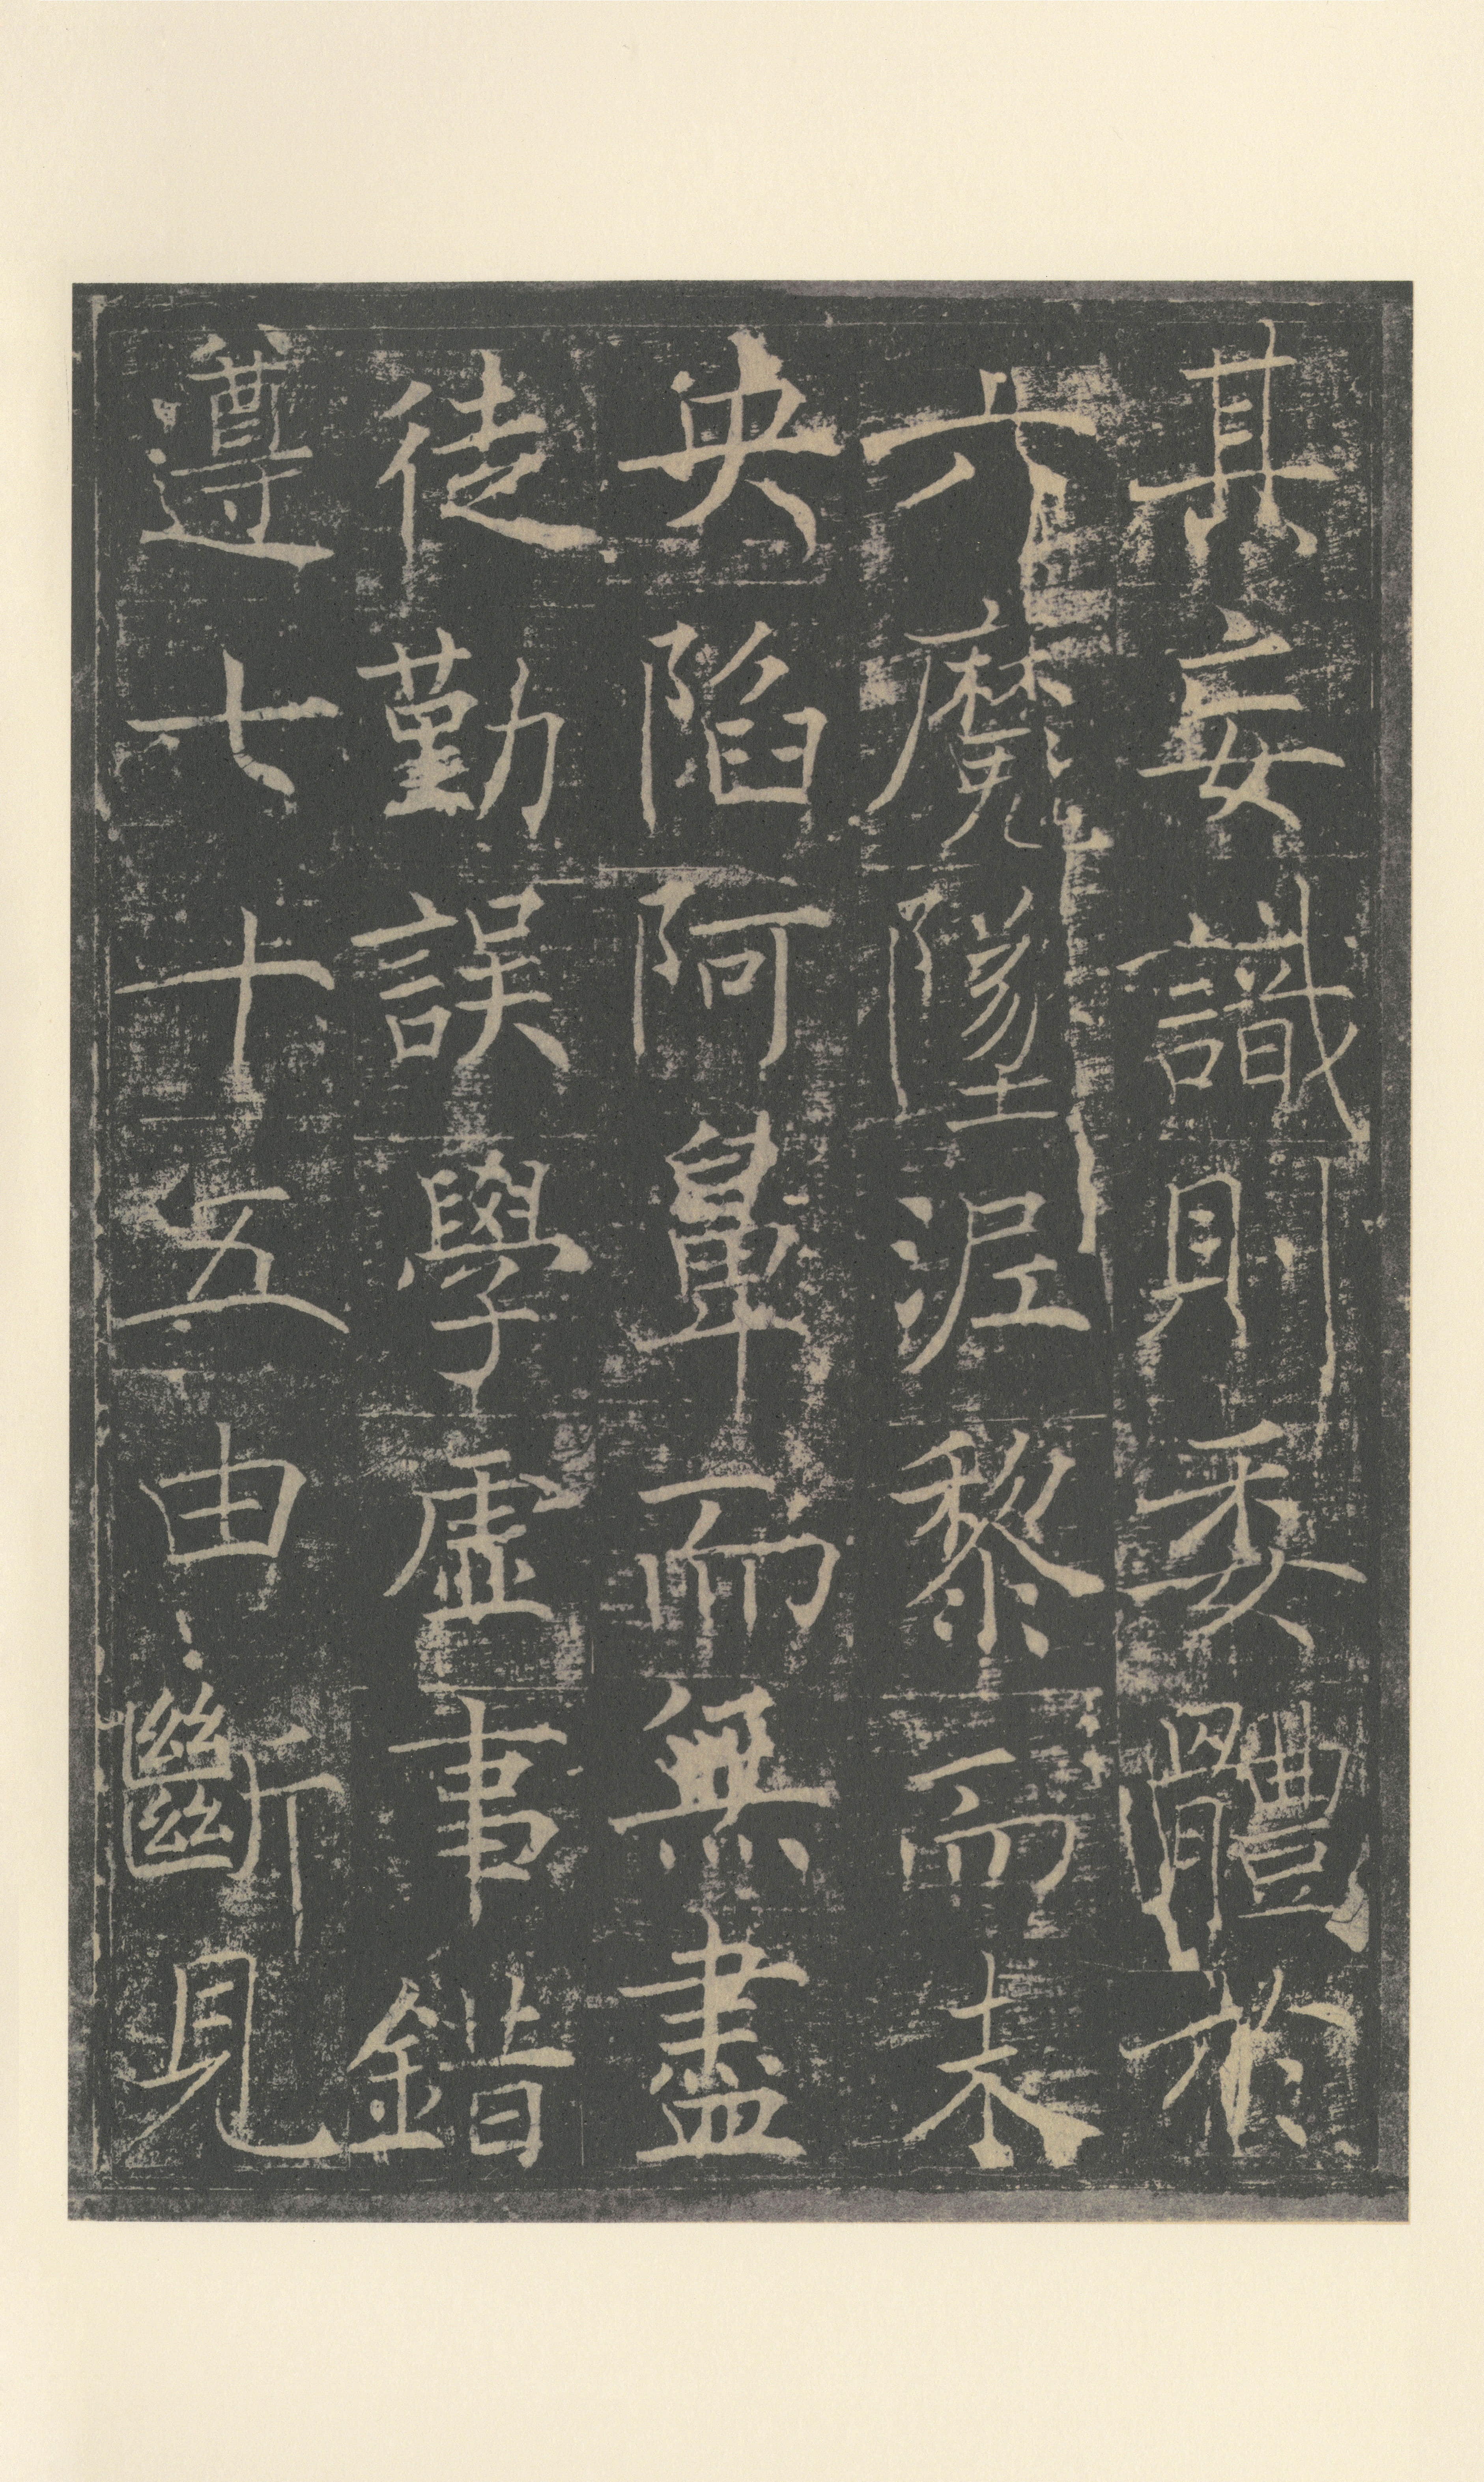 其妄識則委體於
六魔墜泥黎而未
央陷阿鼻而無盡
徒勤誤學虛事錯
遵七十五由斷見